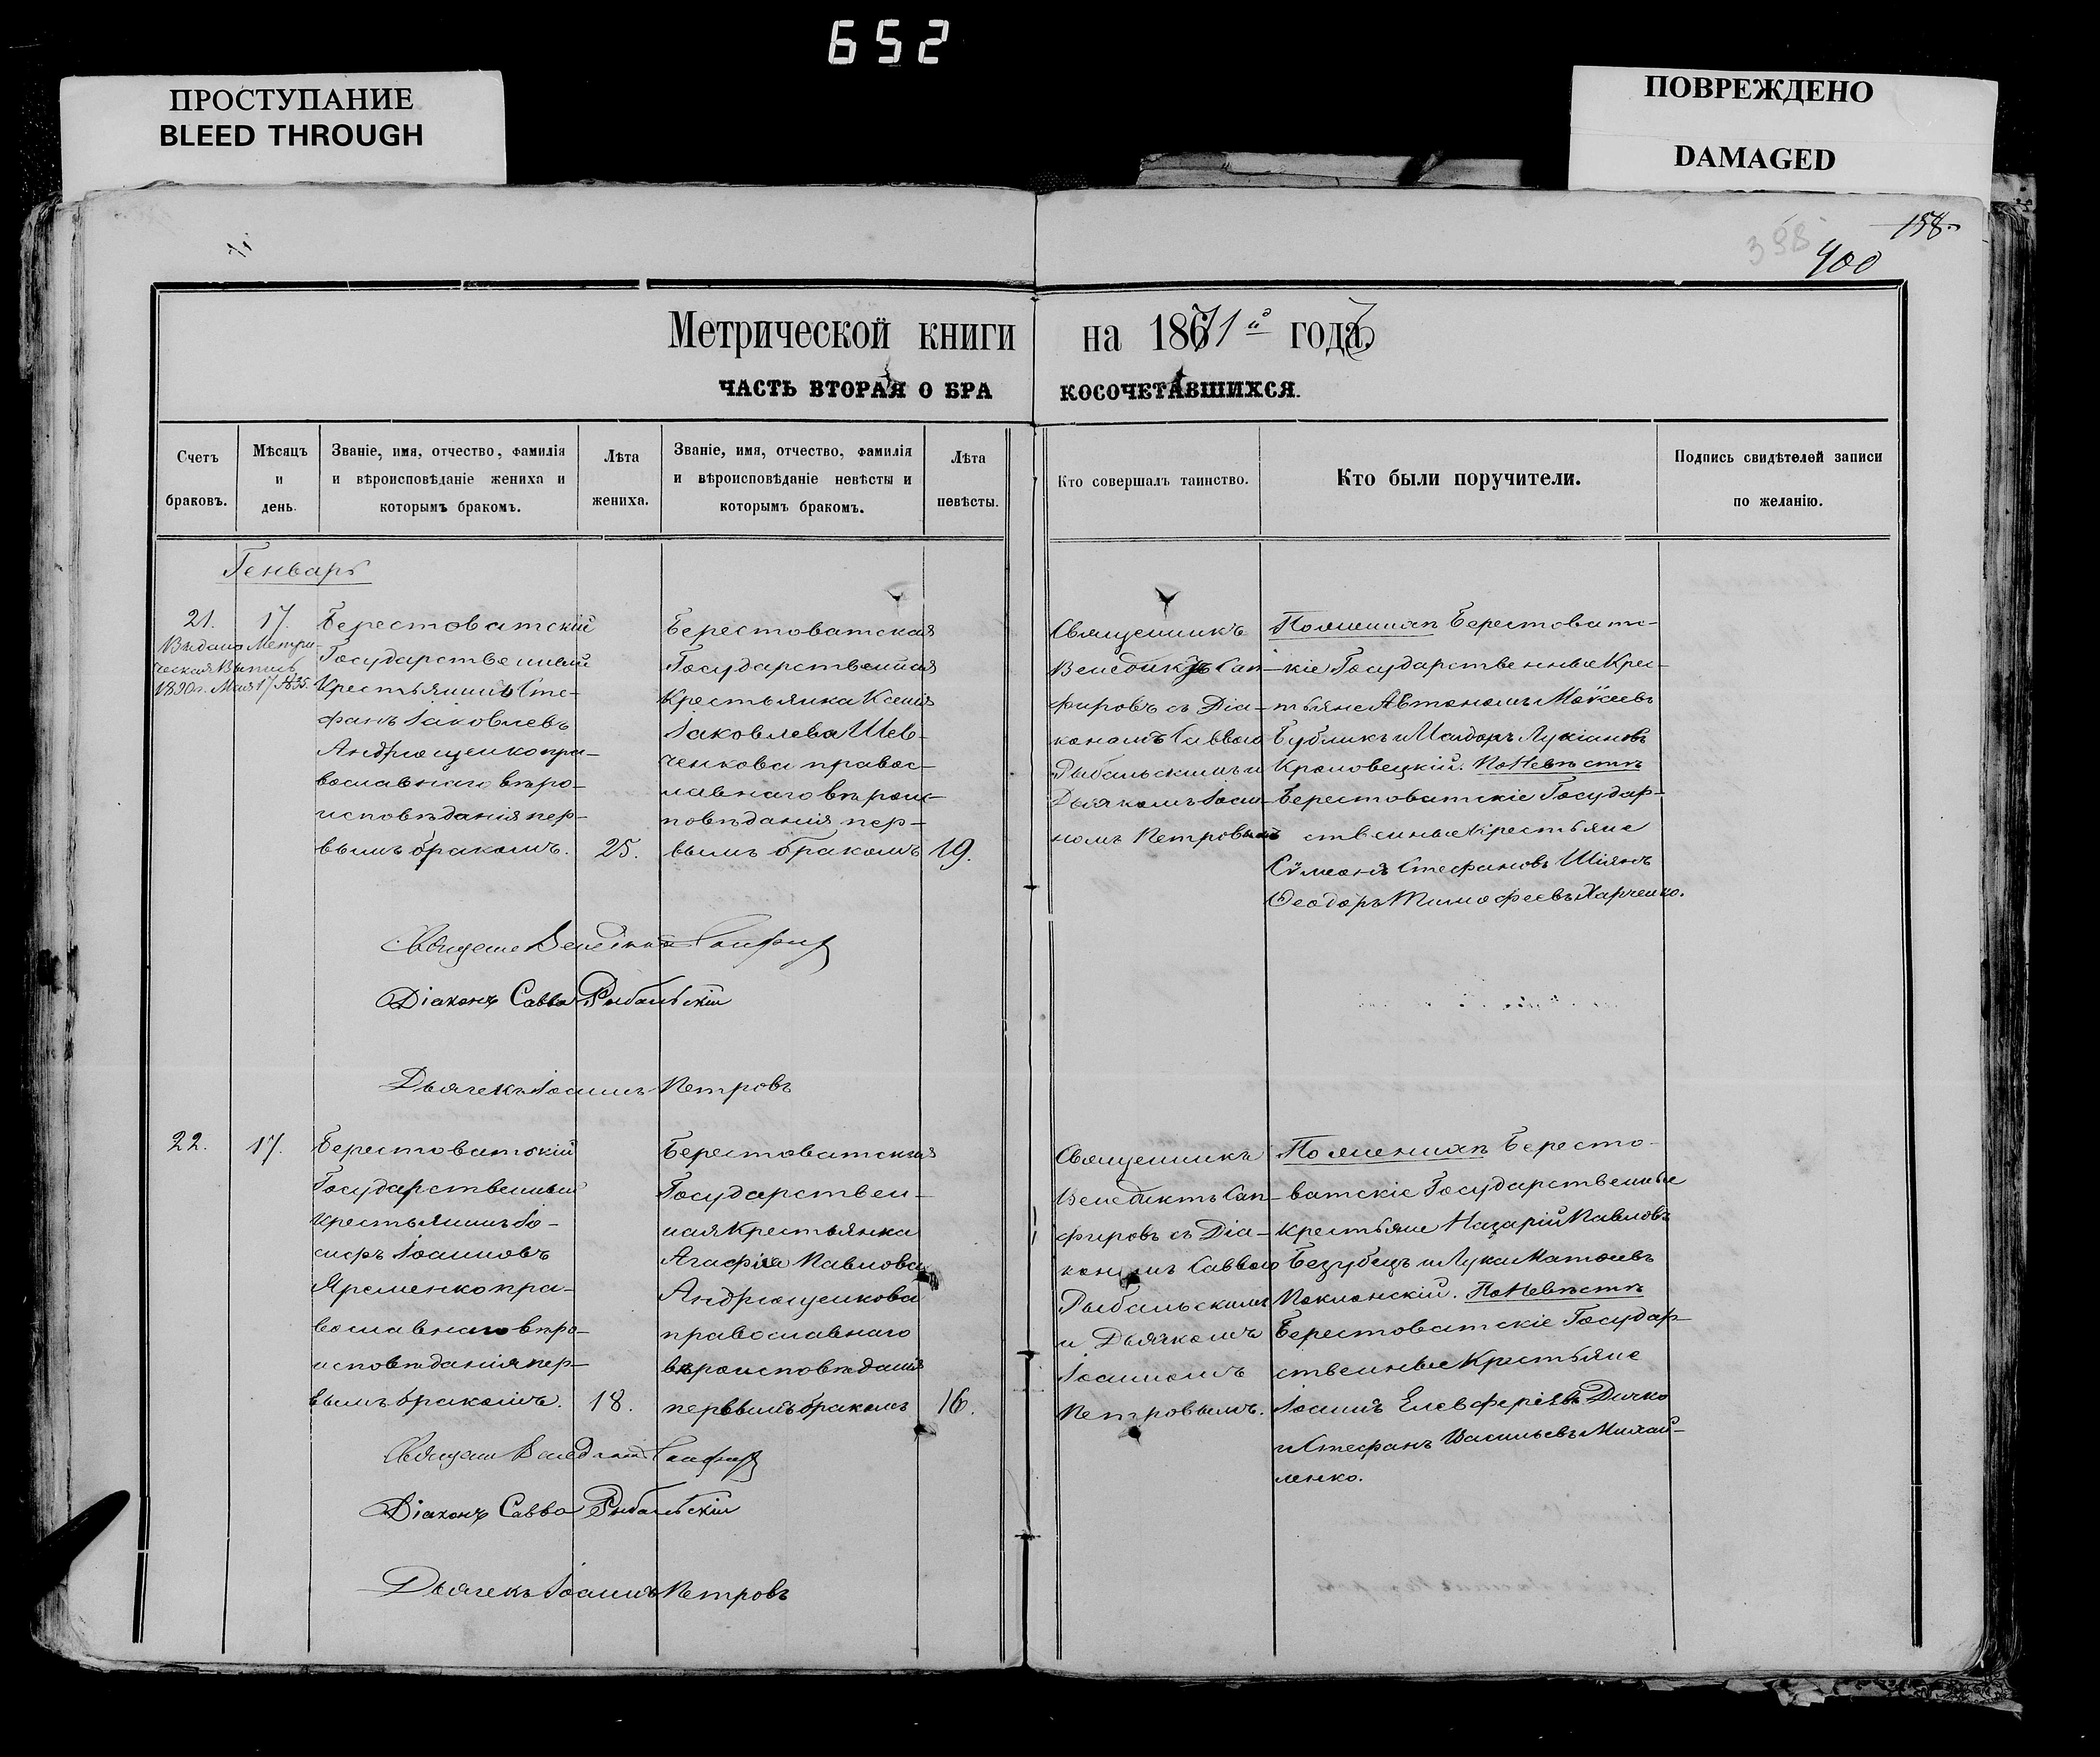 652
ПРОСТУПАНИЕ
BLEED THROUGH
ПОВРЕЖДЕНО
DAMAGED
158.
398
400
Метрической книги на 1871й года
ЧАСТЬ ВТОРАЯ О БРАКОСОЧЕТАВШИХСЯ.
Счетъ браковъ.
Мѣсяцъ и день.
Званіе, имя, отчество, фамилія
и вѣроисповѣданіе жениха и
которымъ бракомъ.
Лѣта жениха.
Званіе, имя, отчество, фамилія
и вѣроисповѣданіе невѣсты и
которымъ бракомъ.
Лѣта невѣсты.
Кто совершалъ таинство.
Кто были поручители.
Подпись свидѣтелей записи
по желанію.
Генварь
21.
Выдана Метри-
ческая Выпись
1890г. Мая 17 №35.
17.
Берестоватскій
Государственный
Крестьянинъ Сте-
фанъ Іаковлевъ
Андрющенко пра-
вославнаго вѣро-
исповѣданія пер-
вымъ бракомъ.
25.
Берестоватская
Государственная
Крестьянка Ксенія
Іаковлева Шев-
ченкова правос-
лавнаго вѣроис-
повѣданія пер-
вымъ бракомъ
19.
Священникъ
Венедиктъ Сап-
фировъ съ Діа-
кономъ Саввою
Рыбальскимъ и
Дьячкомъ Іоан-
номъ Петровымъ
По женихѣ Берестоватс-
кіе Государственные Крес-
тьяне Автономъ Моѵсеевъ
Бубликъ и Исидоръ Лукіановъ
Кроловецкій. По Невѣстѣ
Берестоватскіе Государ-
ственные Крестьяне
Сѵмеонъ Стефановъ Шіянъ
Ѳеодоръ Тимофеевъ Харченко.
Священ Венедиктъ Сапфир
Діаконъ Савва Рыбальскій
Дьячекъ Іоаннъ Петровъ
22.
17.
Берестоватскій
Государственный
Крестьянинъ Іо-
сифъ Іоанновъ
Яременко пра-
вославнаго вѣро-
исповѣданія пер-
вымъ бракомъ.
18.
Берестоватская
Государствен-
ная Крестьянка
Агафія Павлова
Андрющенкова
православнаго
вѣроисповѣданія
первымъ бракомъ
16.
Священникъ
Венедиктъ Сап-
фировъ съ Діа-
кономъ Саввою
Рыбальскимъ
и Дьячкомъ
Іоанномъ
Петровымъ.
По женихѣ Бересто-
ватскіе Государственные
Крестьяне Назарій Павловъ
Беззубецъ и Лука Матѳеевъ
Поклонскій. По Невѣстѣ
Берестоватскіе Государ-
ственные Крестьяне
Іоаннъ Елевферіевъ Дичко
и Стефанъ Васильевъ Михай-
ленко.
Священ Венедиктъ Сапфир
Діаконъ Савва Рыбальскій
Дьячекъ Іоаннъ Петровъ